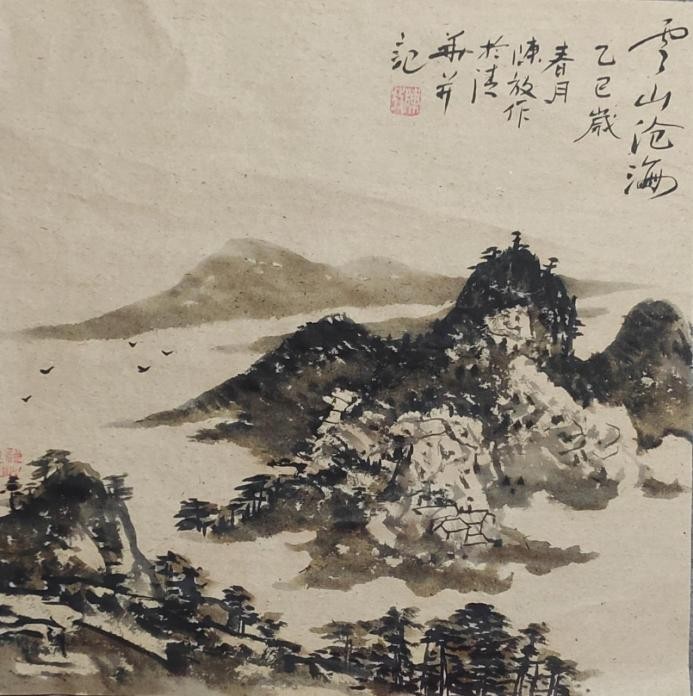 雲山沧海
乙巳歲
春月
陳放作
於清
華并
記